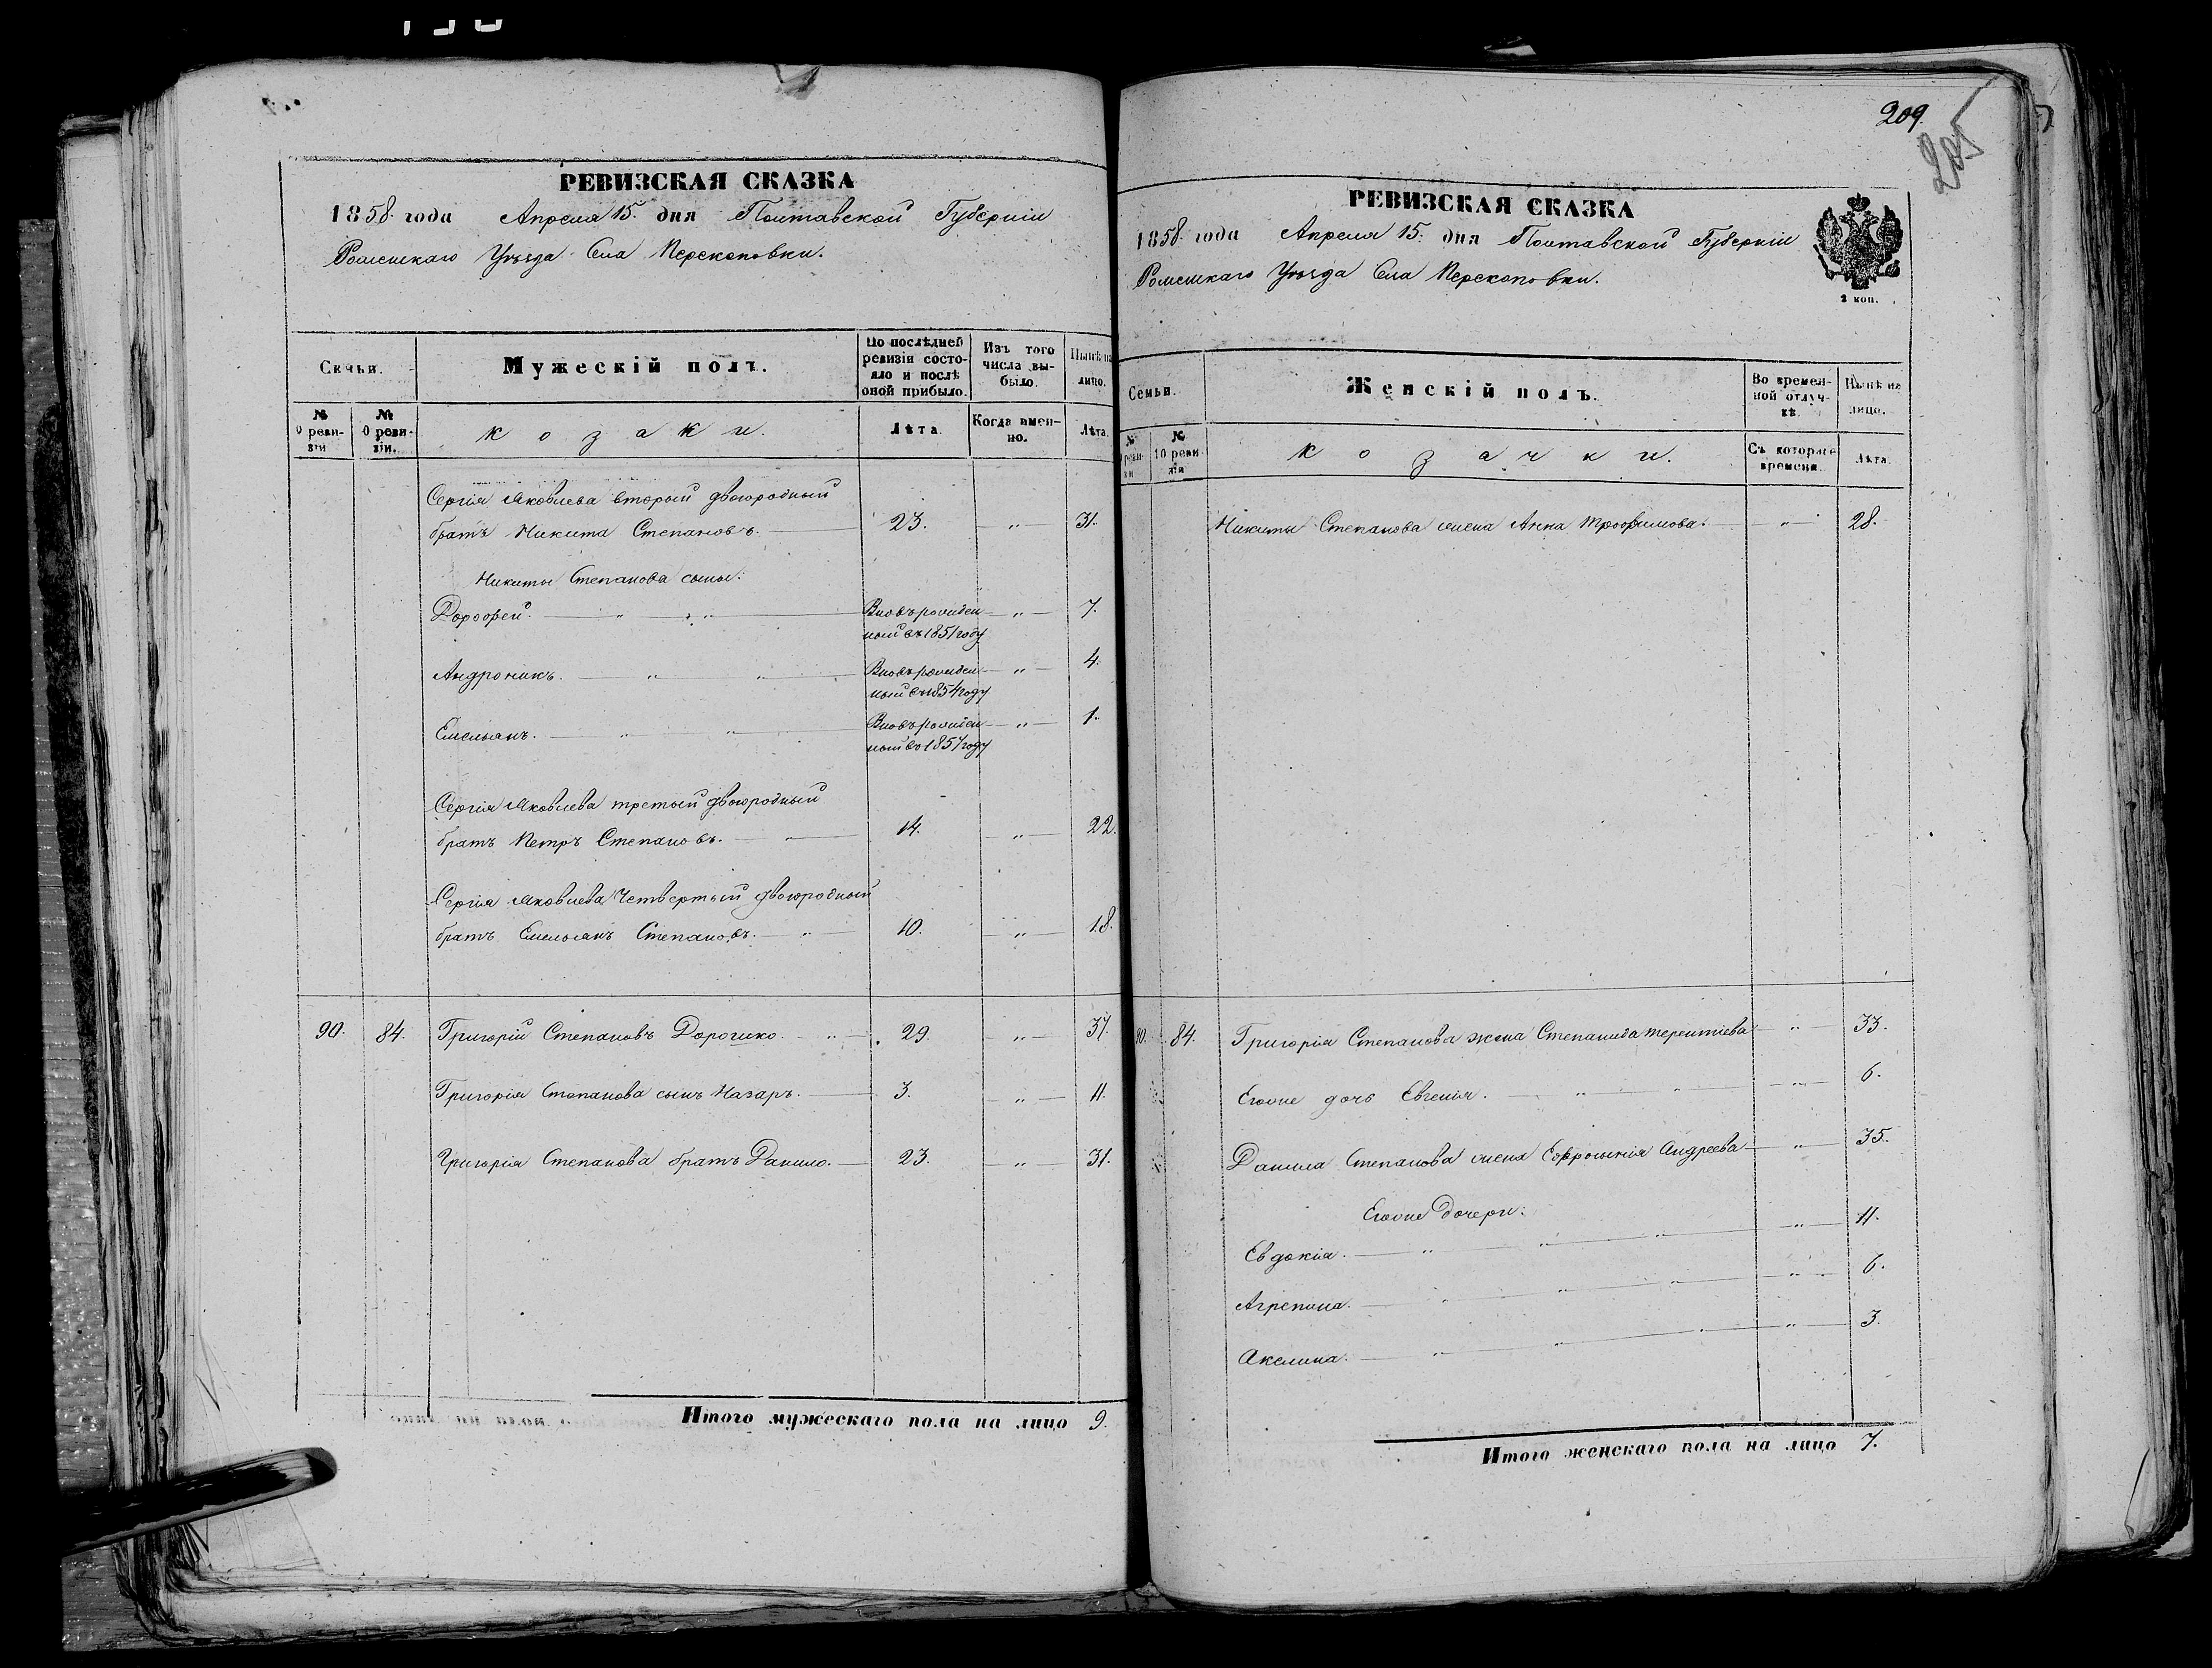 209.
205
РЕВИЗСКАЯ СКАЗКА
1858. года Апреля 15. дня Полтавской Губерніи
Роменскаго Уѣзда Села Перекоповки.
Семьи.
Мужескій полъ.
По послѣдней ревизіи состояло и послѣ оной прибыло.
Изъ того числа выбыло.
Нынѣ на лицо.
№ 9 ревизіи
№ 10 ревизіи.
козаки.
Лѣта.
Когда именно.
Лѣта.
Сергія Яковлева вторый двоюродный
братъ Никита Степановъ. 23. „ 31.
Никиты Степанова сыны:
Дорофей. „ „ Вновь рожден- „ 7.
ный въ 1851 году
Андроникъ. „ „ Вновь рожден- „ 4.
ный въ 1854 году
Емельянъ. „ „ Вновь рожден- „ 1.
ный въ 1857 году
Сергія Яковлева третый двоюродный
братъ Петръ Степановъ. „ 14. „ 22.
Сергія Яковлева Четвертый двоюродный
братъ Емельянъ Степановъ. „ 10. „ 18.
90. 84. Григорій Степановъ Дорошко. „ 29. „ 37.
Григорія Степанова сынъ Назаръ. 3. „ 11.
Григорія Степанова братъ Данило. 23. „ 31.
Итого мужескаго пола на лицо 9.
РЕВИЗСКАЯ СКАЗКА
1858. года Апреля 15. дня Полтавской Губерніи
Роменскаго Уѣзда Села Перекоповки.
2 коп.
Семьи.
Женскій полъ.
Во временной отлучкѣ.
Нынѣ на лицо.
№ ревизіи
№ 10 ревизіи
козачки.
Съ котораго времени.
Лѣта.
Никиты Степанова жена Анна Трофимова. „ 28.
90. 84. Григорія Степанова жена Степанида Терентіева „ 33.
Егоже дочь Евгенія. „ „ „ 6.
Данила Степанова жена Евфросинія Андреева „ 35.
Егоже Дочери:
Евдокія. „ „ „ „ 11.
Агрепина. „ „ „ „ 6.
Акелина. „ „ „ „ 3.
Итого женскаго пола на лицо 7.